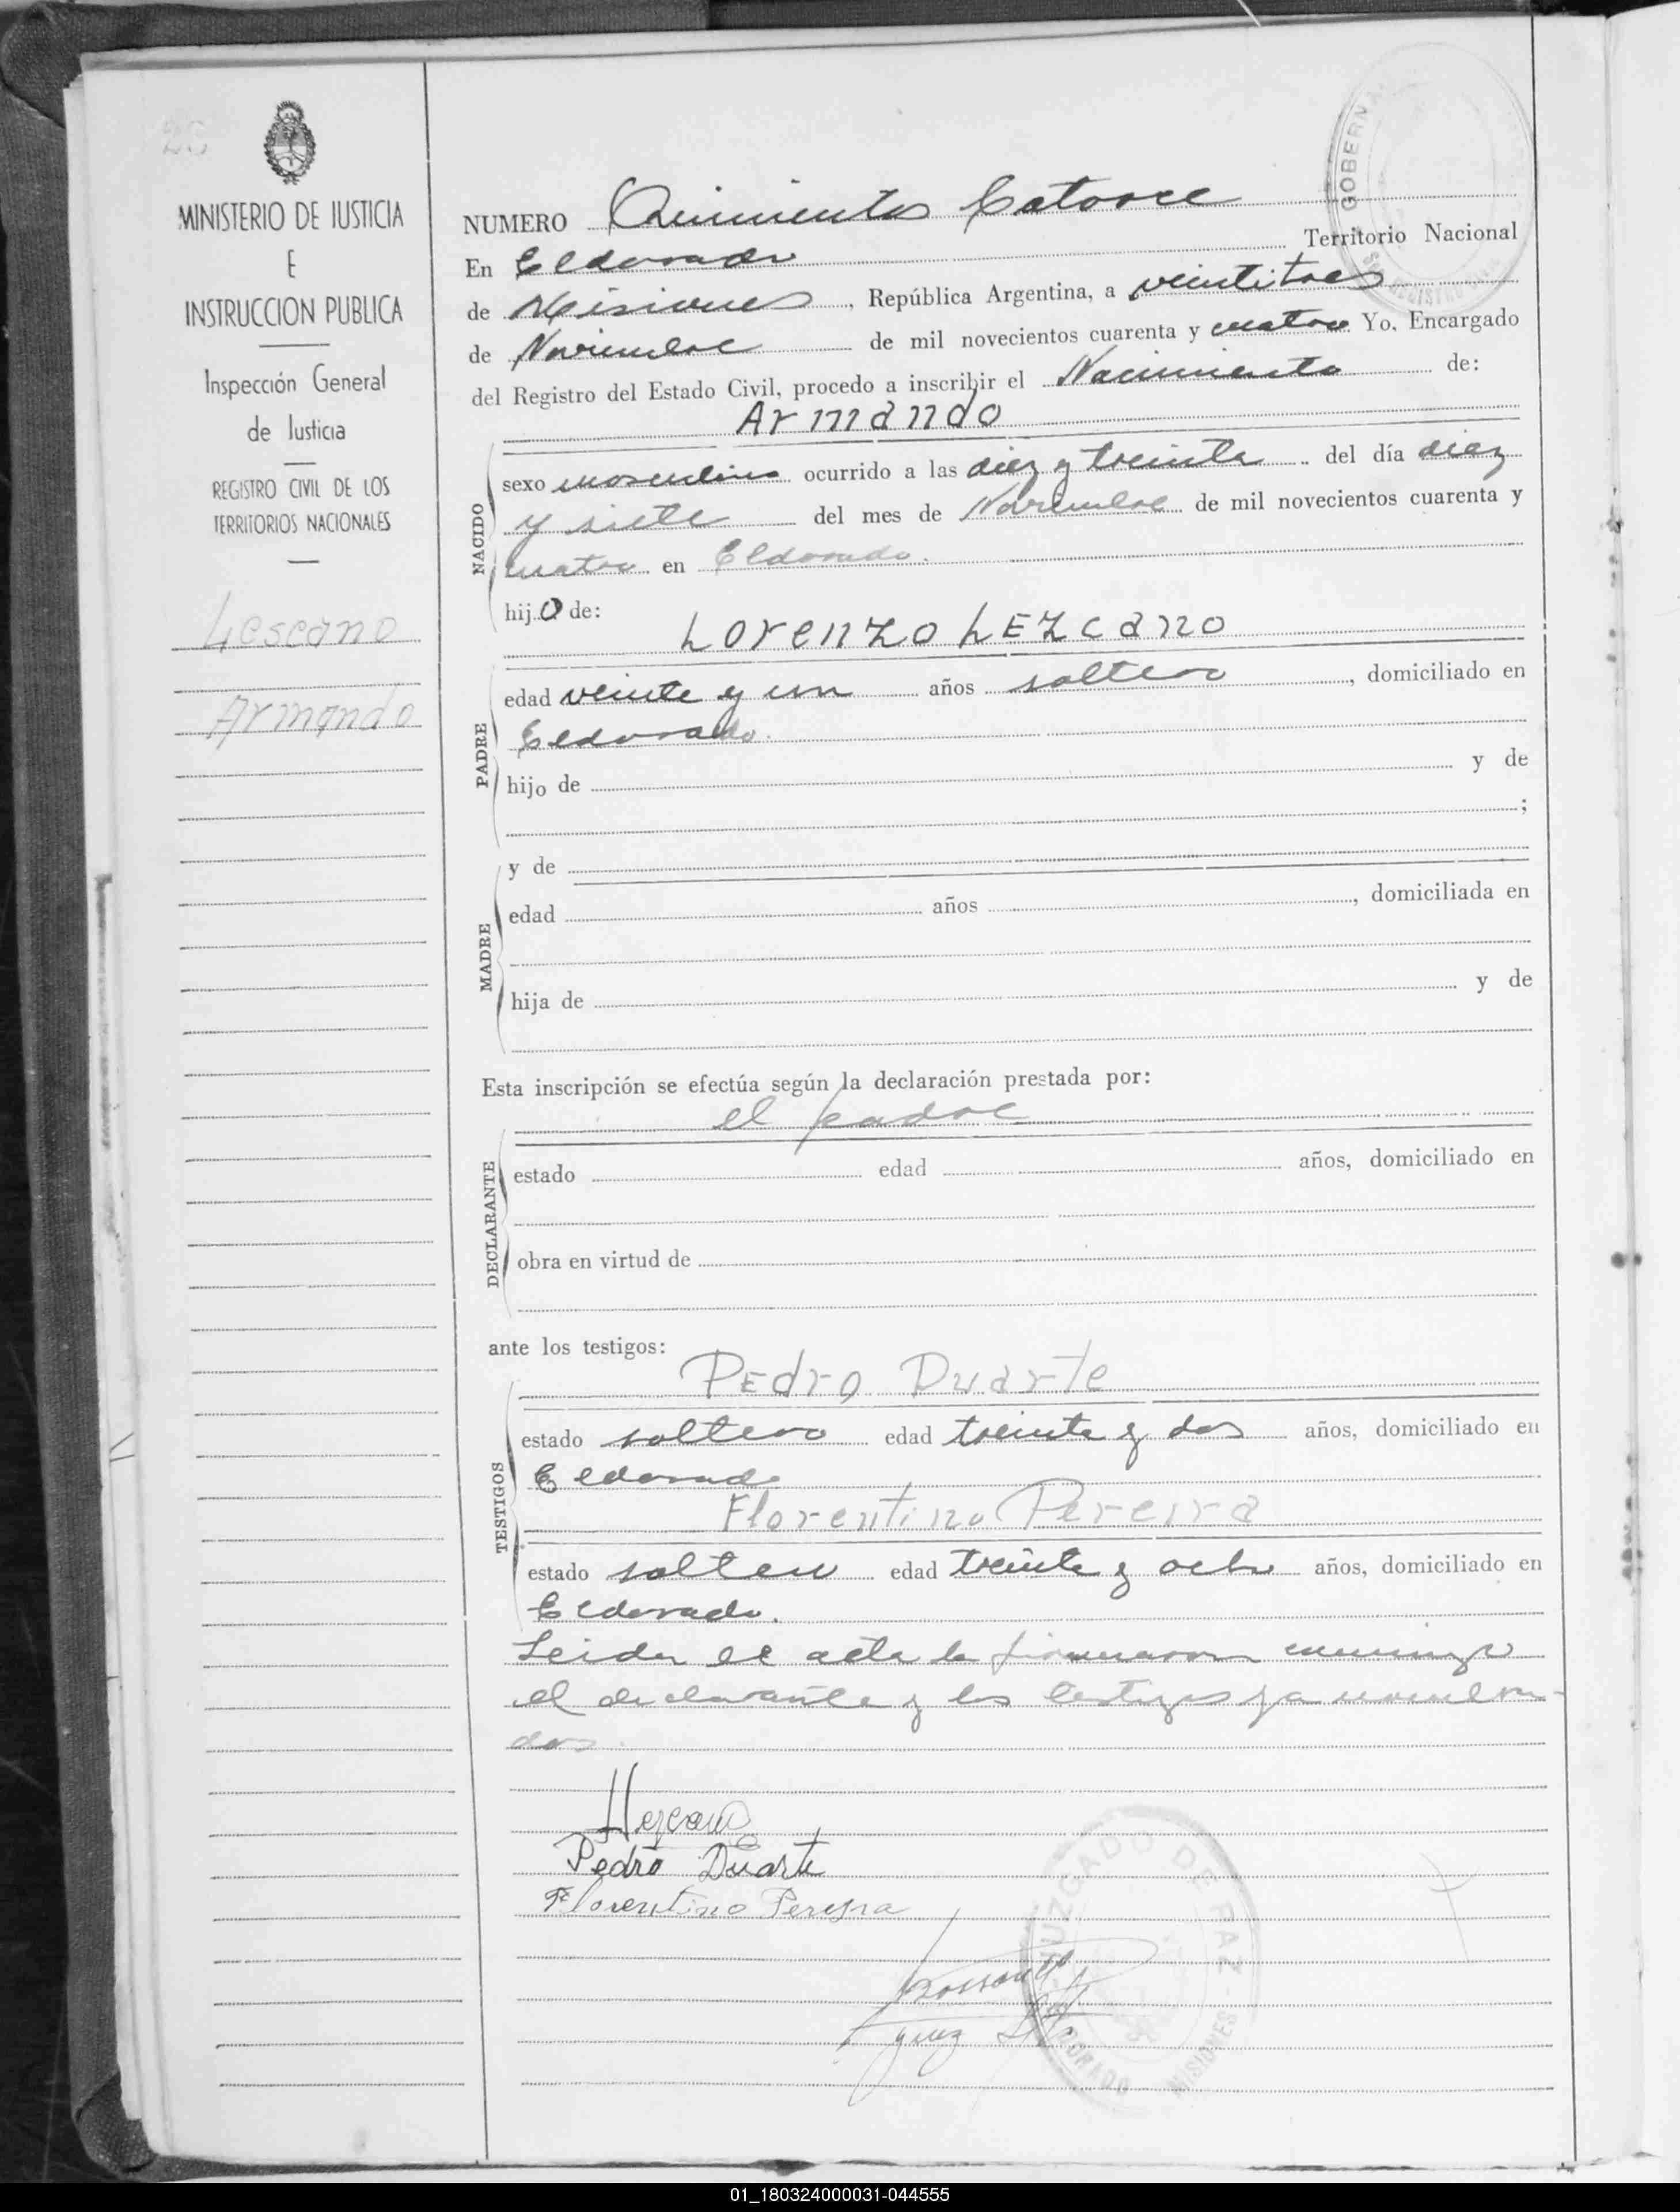 26
MINISTERIO DE JUSTICIA
E
INSTRUCCION PUBLICA
Inspección General
de Justicia
REGISTRO CIVIL DE LOS
TERRITORIOS NACIONALES
Lescano
Armando
GOBERNA
NUMERO Quinientos Catorce
En Eldorado Territorio Nacional
de Misiones, República Argentina, a veintitres
de Noviembre de mil novecientos cuarenta y cuatro Yo, Encargado
del Registro del Estado Civil, procedo a inscribir el Nacimiento de:
Armando
NACIDO
sexo masculino ocurrido a las diez y treinta del día diez
y siete del mes de Noviembre de mil novecientos cuarenta y
cuatro en Eldorado.
hijo de:
Lorenzo LEZcano
PADRE
edad veinte y un años soltero, domiciliado en
Eldorado.
hijo de y de
;
MADRE
y de
edad años, domiciliada en
hija de y de
Esta inscripción se efectúa según la declaración prestada por:
el padre
DECLARANTE
estado edad años, domiciliado en
obra en virtud de
ante los testigos:
TESTIGOS
PEdro Duarte
estado soltero edad treinta y dos años, domiciliado en
Eldorado
Florentino Pereira
estado soltero edad treinta y ocho años, domiciliado en
Eldorado.
Leida el acta la firmaron conmigo
el declarante y los testigos ya nombra-
dos.
Lezcano
Pedro Duarte
Florentino Pereyra
JUZGADO DE PAZ - MISIONES
ELDORADO
01_180324000031-044555